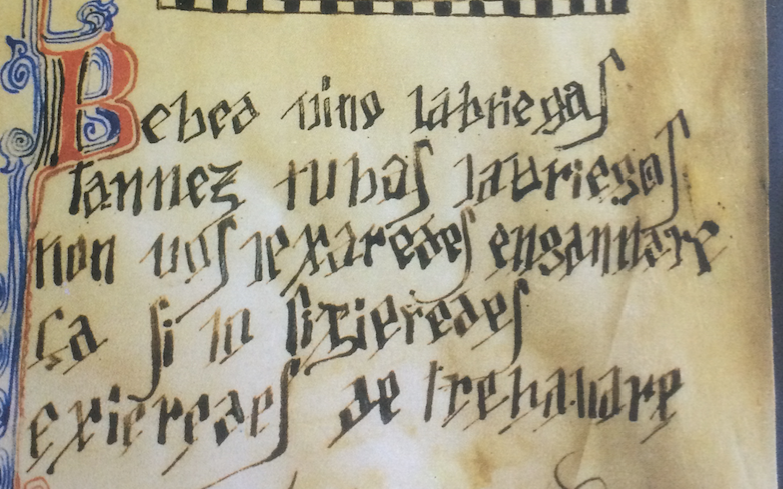 Bebed vino labriegas
tannez tubas labriegas
non vos lexaredes engannare
Ca si lo fizieredes
exieredes de trebaiare